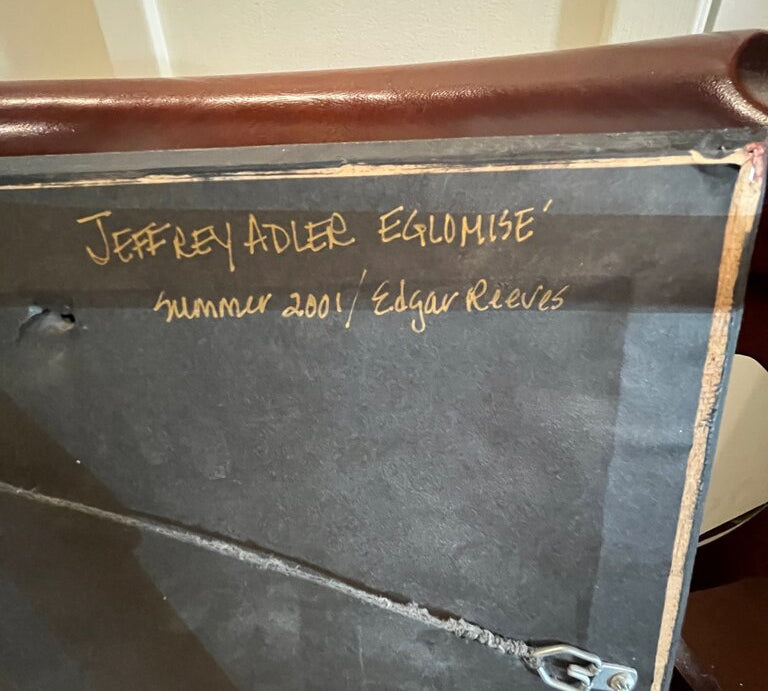 JEFFREY ADLER EGLOMISE´
Summer 2001/ Edgar Reeves